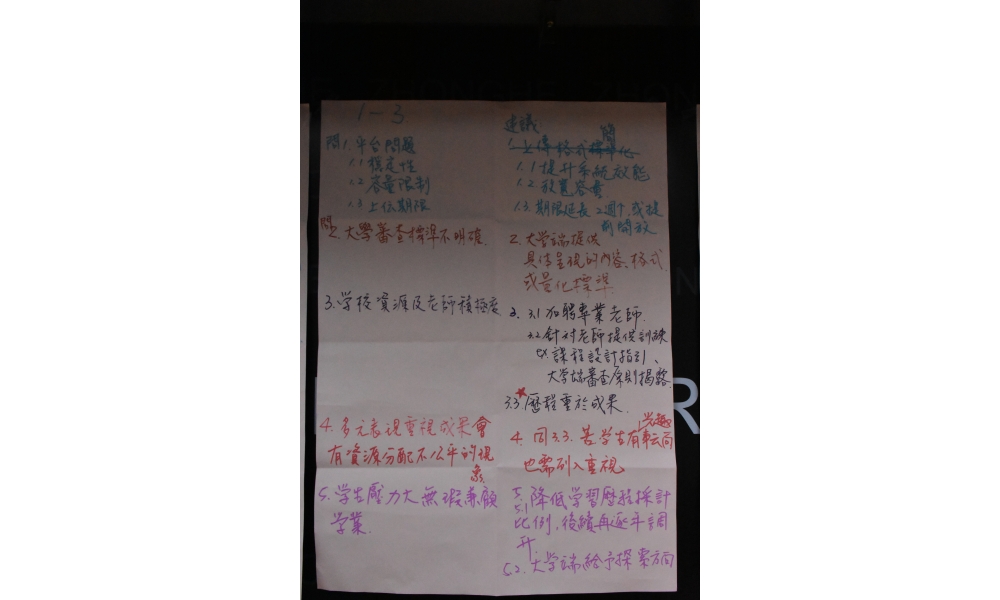 1-3
問1.平台問題
1.1 穩定性
1.2 容量限制
1.3 上傳期限
問2.大學審查標準不明確.
3.学校資源及老師積極度
4.多元表現重視成果會
有資源分配不公平的現
象.
5.学生壓力大無瑕兼顧
学業.
建議:
1.上傳格式標準化
簡
1.1 提升系統效能
1.2 放寬容量
1.3.期限延長2週下,或提
前開放
2.大学端提供
具体呈現的內容、格式
或量化標準
3. 3.1 加聘專業老師.
3.2 針对老師提供訓練
以課程設計指引、
大学端審查原則揭露.
3.3 ★歷程重於成果.
4. 同3.3. 若学生有興趣方向
也需列入重視
5.
5.1 降低学習歷程採計
比例,後續再逐年調
升.
5.2.大学端給予探索方向